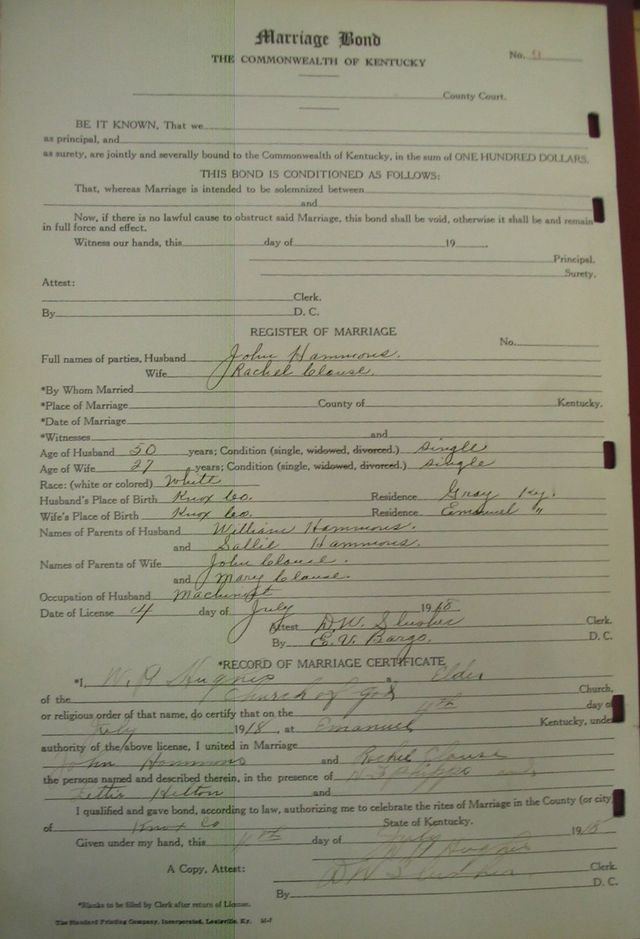 Marriage Bond
THE COMMONWEALTH OF KENTUCKY
No. 9
County Court.
BE IT KNOWN, That we
as principal, and
as surety, are jointly and severally bound to the Commonwealth of Kentucky, in the sum of ONE HUNDRED DOLLARS.
THIS BOND IS CONDITIONED AS FOLLOWS:
That, whereas Marriage is intended to be solemnized between
and
Now, if there is no lawful cause to obstruct said Marriage, this bond shall be void, otherwise it shall be and remain
in full force and effect.
Witness our hands, this day of 19 .
Principal.
Surety.
Attest:
Clerk.
By D. C.
REGISTER OF MARRIAGE
No.
Full names of parties, Husband John Hammons.
Wife Rachel Clouse.
*By Whom Married
*Place of Marriage County of Kentucky.
*Date of Marriage
*Witnesses and
Age of Husband 50 years; Condition (single, widowed, divorced.) Single
Age of Wife 27 years; Condition (single, widowed, divorced.) Single
Race: (white or colored) White
Husband's Place of Birth Knox Co. Residence Gray Ky.
Wife's Place of Birth Knox Co. Residence Emanuel "
Names of Parents of Husband William Hammons.
and Sallie Hammons.
Names of Parents of Wife John Clouse.
and Mary Clouse.
Occupation of Husband Machinist
Date of License 4 day of July 1918
Attest D.W. Slusher Clerk.
By E.V. Bargo. D. C.
*RECORD OF MARRIAGE CERTIFICATE
*I, W. R Hughes a Elder
of the Church of God Church,
or religious order of that name, do certify that on the 4th day of
July 1918, at Emanuel Kentucky, under
authority of the above license, I united in Marriage
John Hammons and Rachel Clouse
the persons named and described therein, in the presence of Phipps and
Lettie Helton and
I qualified and gave bond, according to law, authorizing me to celebrate the rites of Marriage in the County (or city)
of Knox Co State of Kentucky.
Given under my hand, this 4th day of July 1918
Hughes
A Copy, Attest: D W Slusher Clerk.
By D. C.
*Blanks to be filled by Clerk after return of License.
The Standard Printing Company, Incorporated, Louisville, Ky.